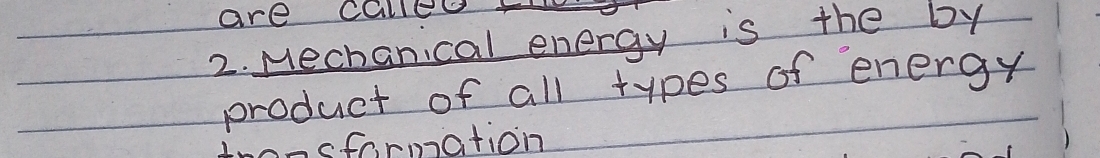 are called
2. Mechanical energy is the by
product of all types of energy
transformation